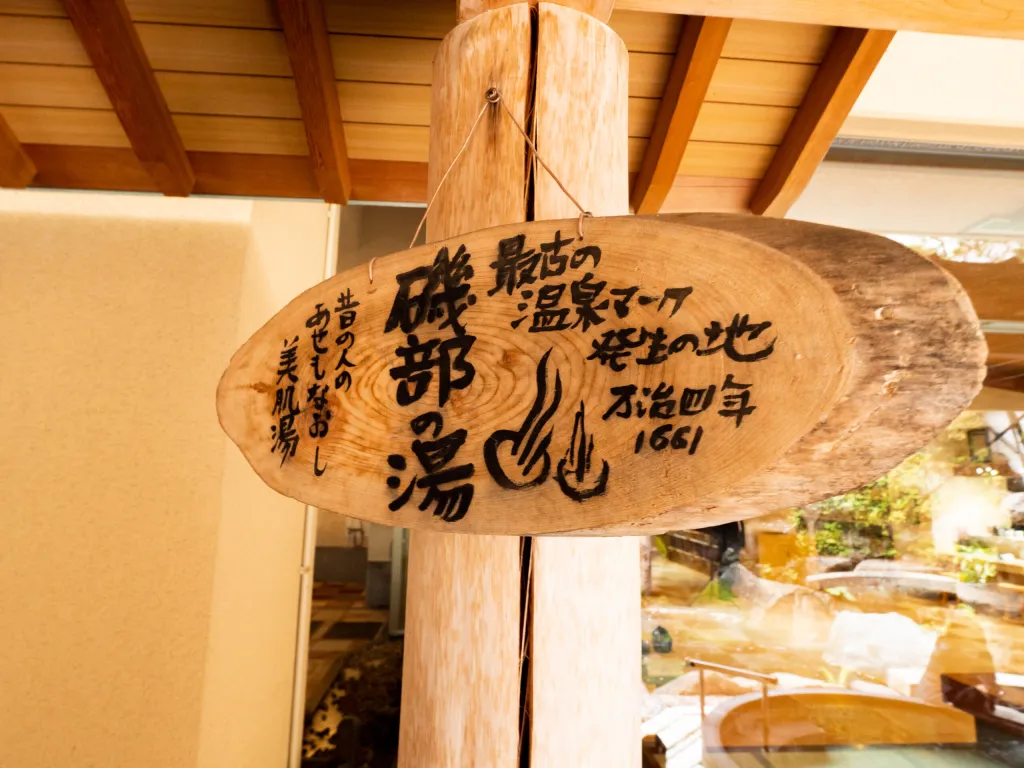 最古の
温泉マーク
発生の地
万治四年
1661
磯部の湯
昔の人の
あせもなおし
美肌湯